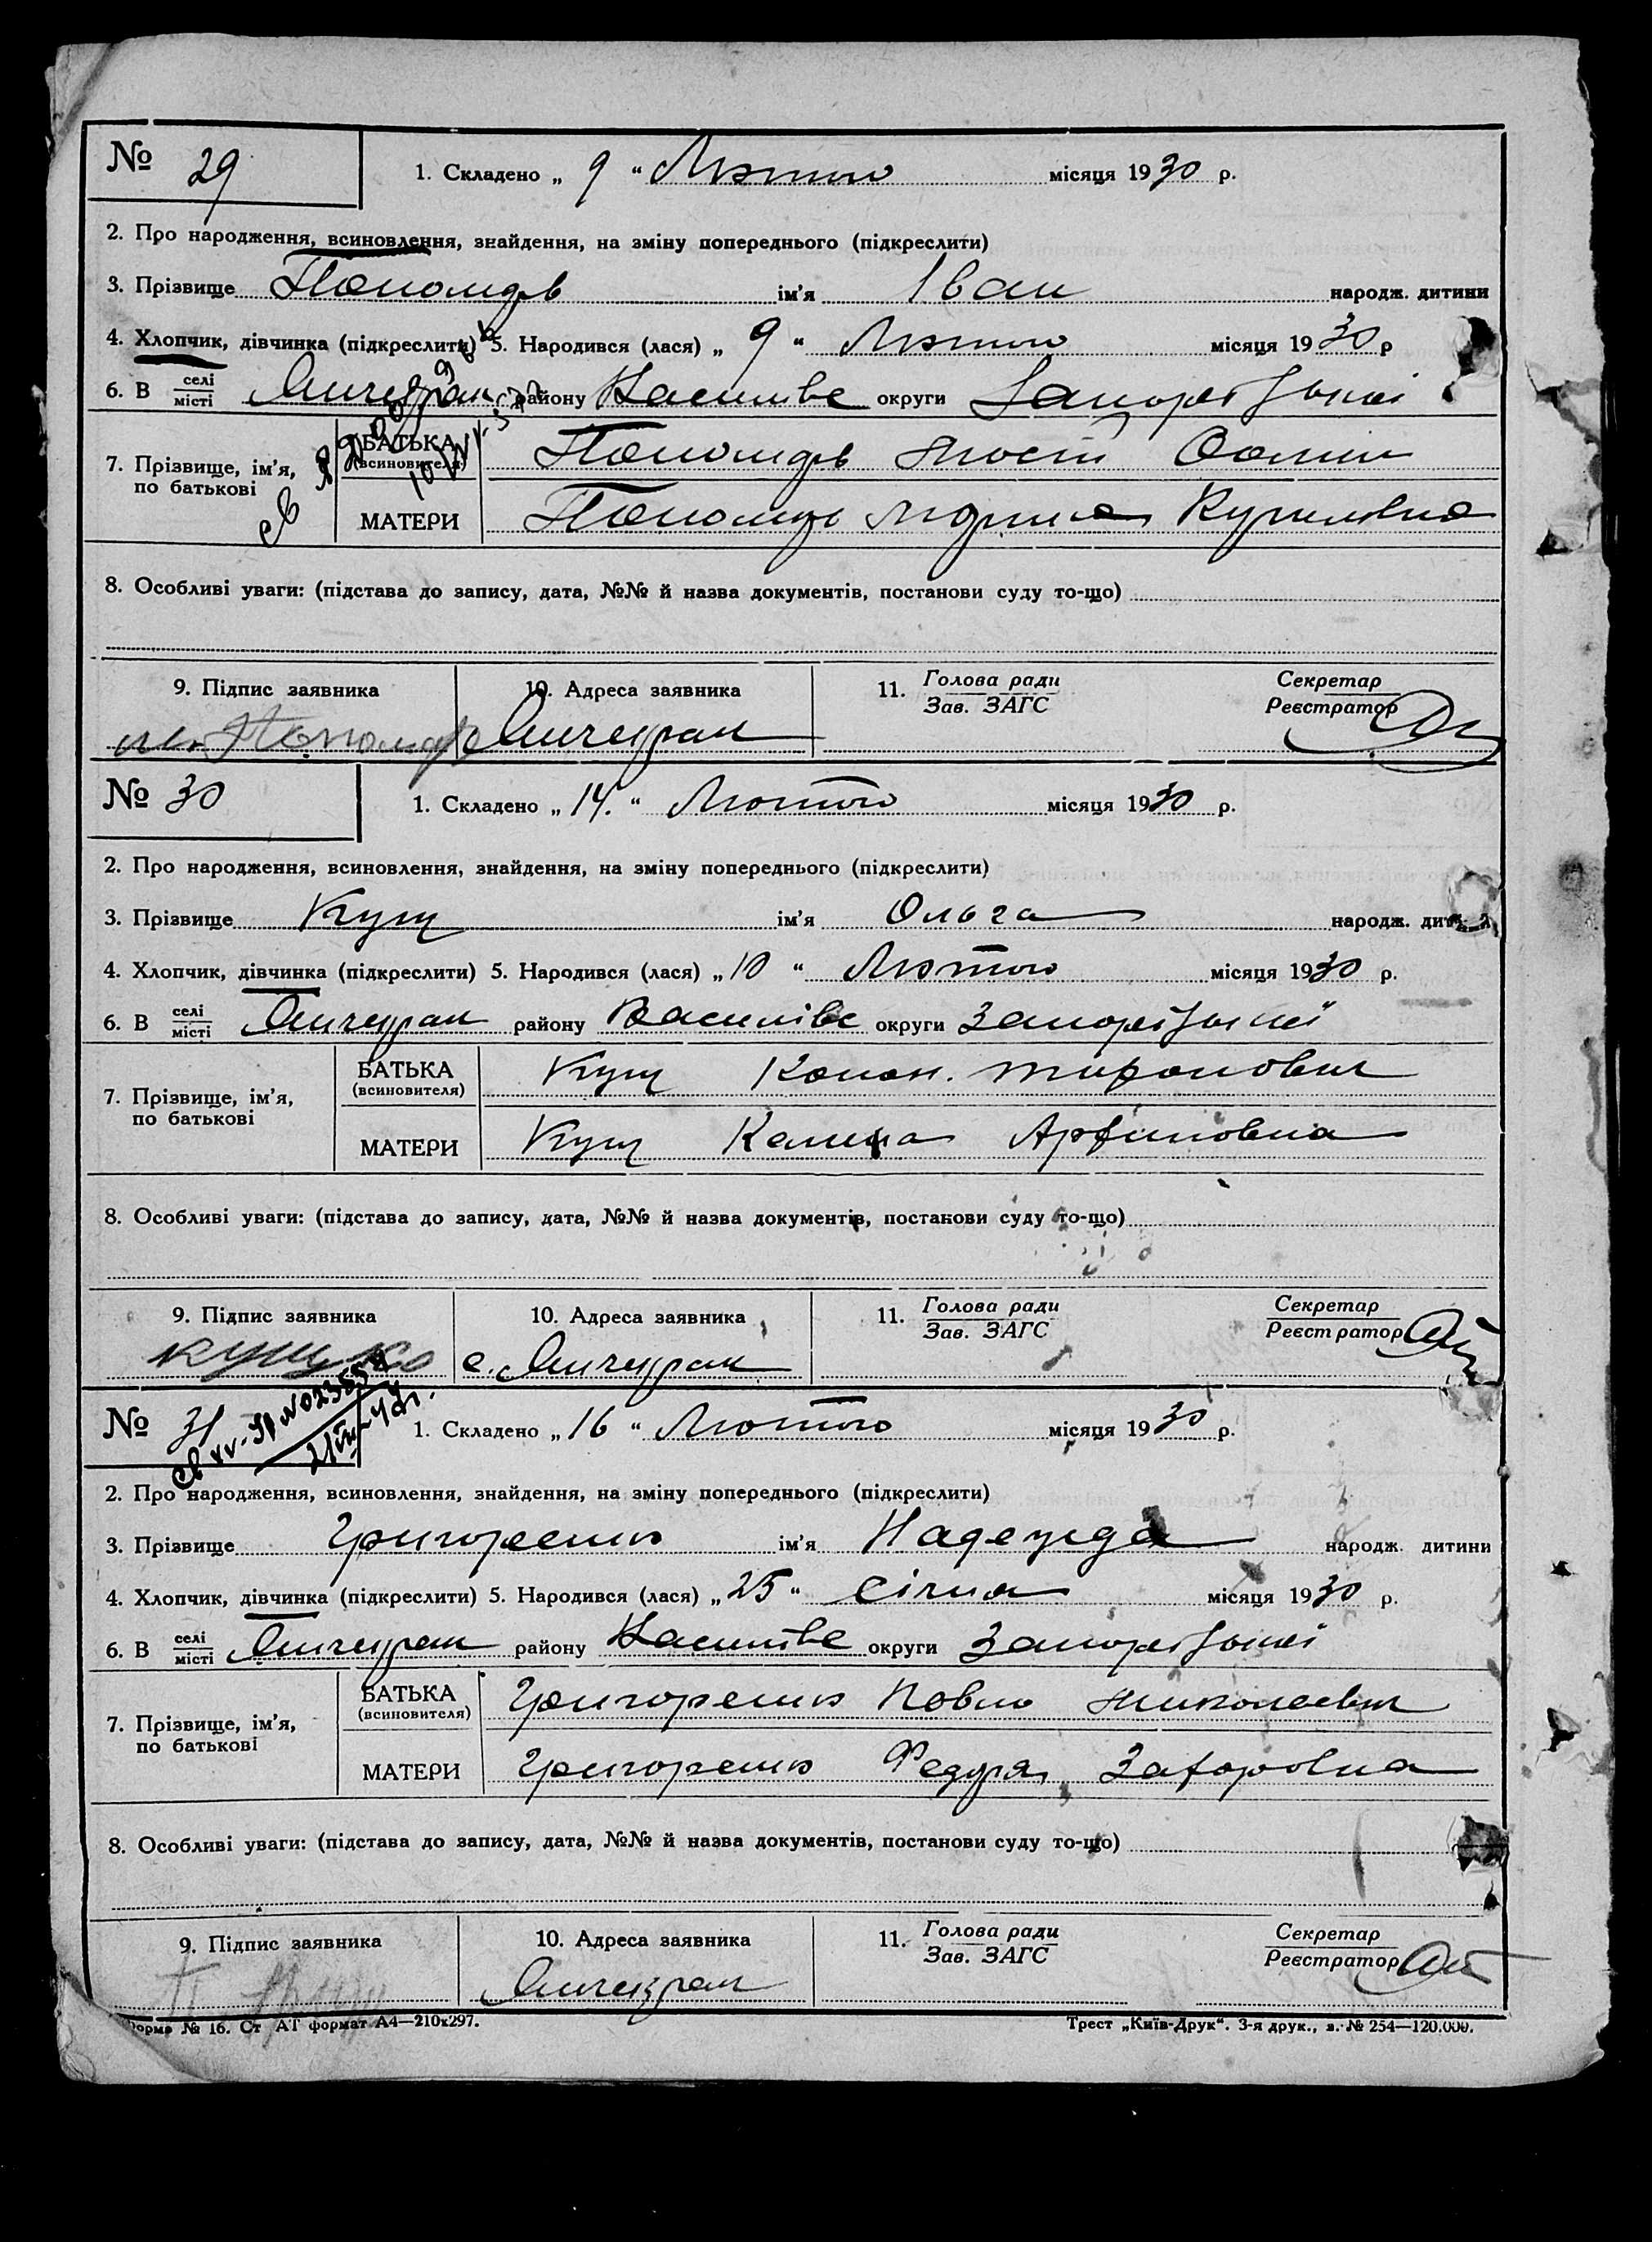 № 29 1. Складено „ 9 “ Лютого місяця 1930 р.
2. Про народження, всиновлення, знайдення, на зміну попереднього (підкреслити)
3. Прізвище ім'я Іван народж. дитини
4. Хлопчик, дівчинка (підкреслити) 5. Народився (лася) „ 9 “ Лютого місяця 1930 р
6. В селі місті Янчекрак району Василівс округи Запорізької
7. Прізвище, ім'я, по батькові БАТЬКА (всиновителя)
МАТЕРИ
8. Особливі уваги: (підстава до запису, дата, №№ й назва документів, постанови суду то-що)
9. Підпис заявника 10. Адреса заявника 11. Голова ради Зав. ЗАГС Секретар Реєстратор
Янчекрак
№ 30 1. Складено „ 14. “ Лютого місяця 1930 р.
2. Про народження, всиновлення, знайдення, на зміну попереднього (підкреслити)
3. Прізвище Кущ ім'я Ольга народж.
4. Хлопчик, дівчинка (підкреслити) 5. Народився (лася) „ 10 “ Лютого місяця 1930 р.
6. В селі місті Янчекрак району Василівс округи Запорізької
7. Прізвище, ім'я, по батькові БАТЬКА (всиновителя) Кущ Конон.
МАТЕРИ Кущ
8. Особливі уваги: (підстава до запису, дата, №№ й назва документів, постанови суду то-що)
9. Підпис заявника 10. Адреса заявника 11. Голова ради Зав. ЗАГС Секретар Реєстратор
Кущ Ко с. Янчекрак
№ 31 1. Складено „ 16 “ Лютого місяця 1930 р.
2. Про народження, всиновлення, знайдення, на зміну попереднього (підкреслити)
3. Прізвище Григоренко ім'я Надежда народж. дитини
4. Хлопчик, дівчинка (підкреслити) 5. Народився (лася) „ 25 “ Січня місяця 1930 р.
6. В селі місті Янчекрак району Василівс округи Запорізької
7. Прізвище, ім'я, по батькові БАТЬКА (всиновителя) Григоренко Павло Николаевич
МАТЕРИ Григоренко Федора Захаровна
8. Особливі уваги: (підстава до запису, дата, №№ й назва документів, постанови суду то-що)
9. Підпис заявника 10. Адреса заявника 11. Голова ради Зав. ЗАГС Секретар Реєстратор
Янчекрак
форма № 16. Ст АТ формат А4—210х297. Трест „Київ-Друк“. 3-я друк., з. № 254—120.000.